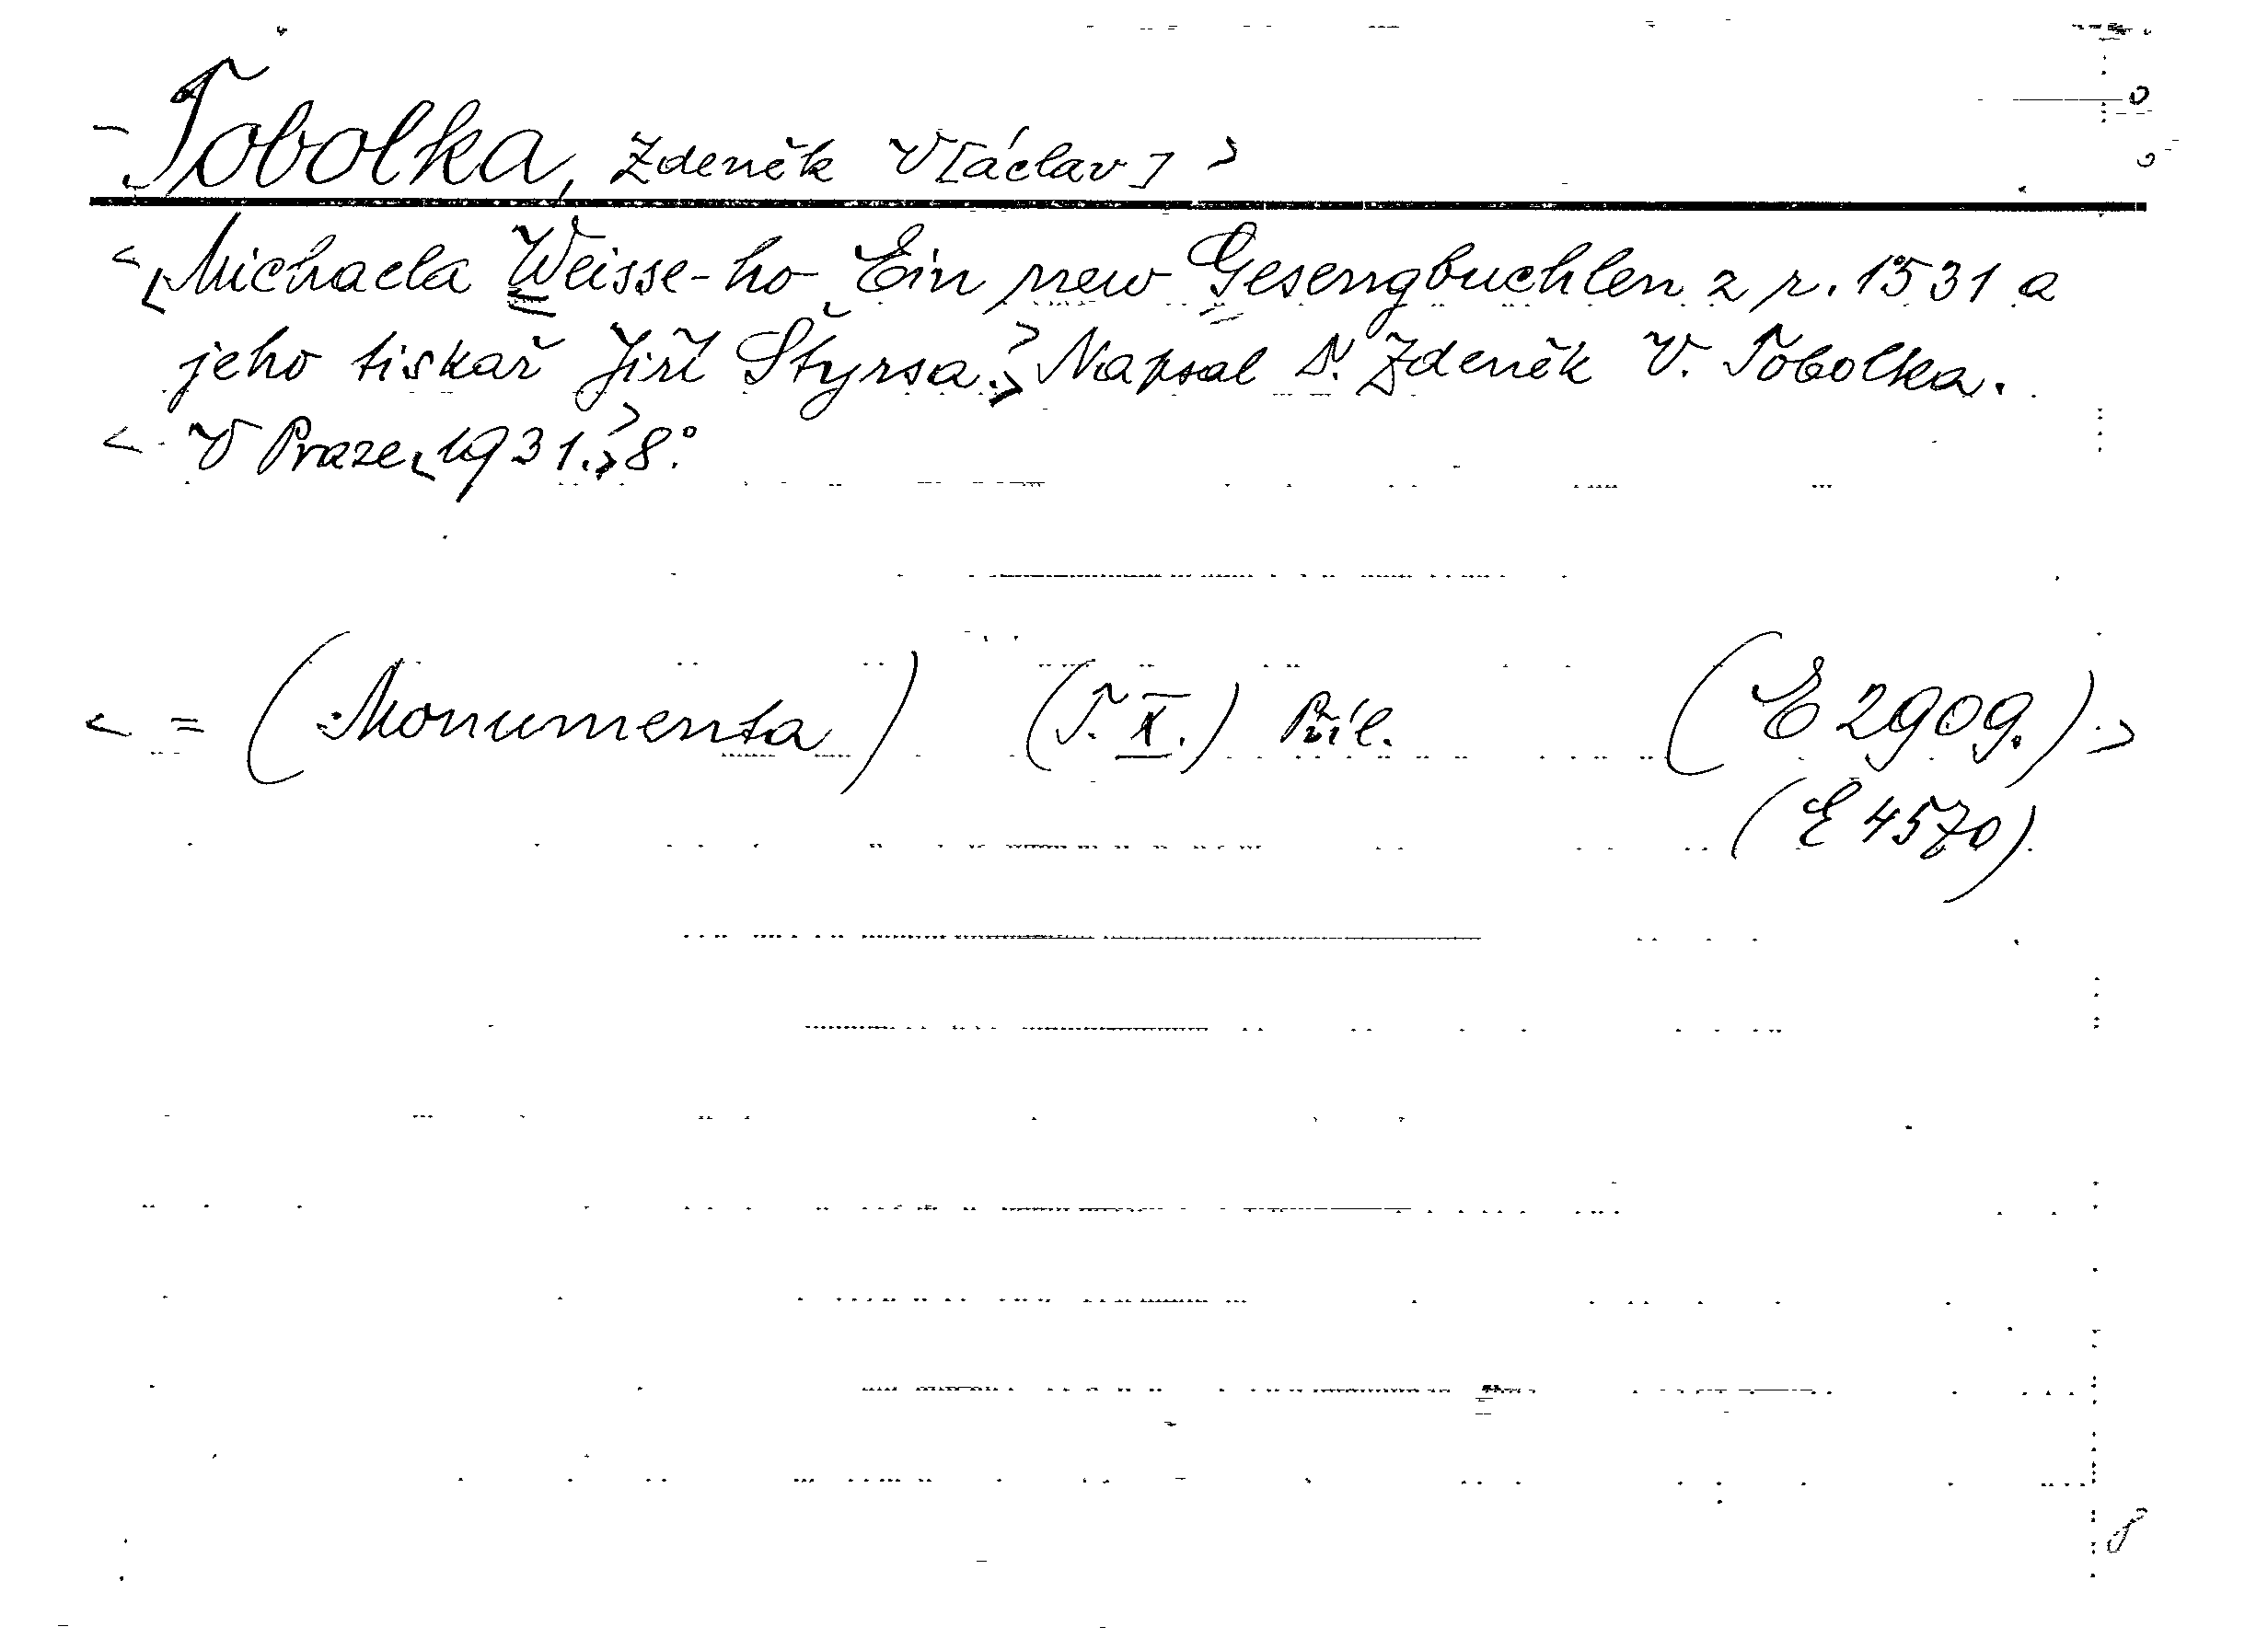 Tobolka, Zdeněk V[áclav] >
< Michaela Weisse-ho Ein new Gesengbuchlen z r. 1531 a
jeho tiskař Jiří Štyrsa. > Napsal Dr. Zdeněk V. Tobolka.
< V Praze 1931. > 8°.
< = (Monumenta) (T. X.) Příl. (E 2909.) >
(E 4570)